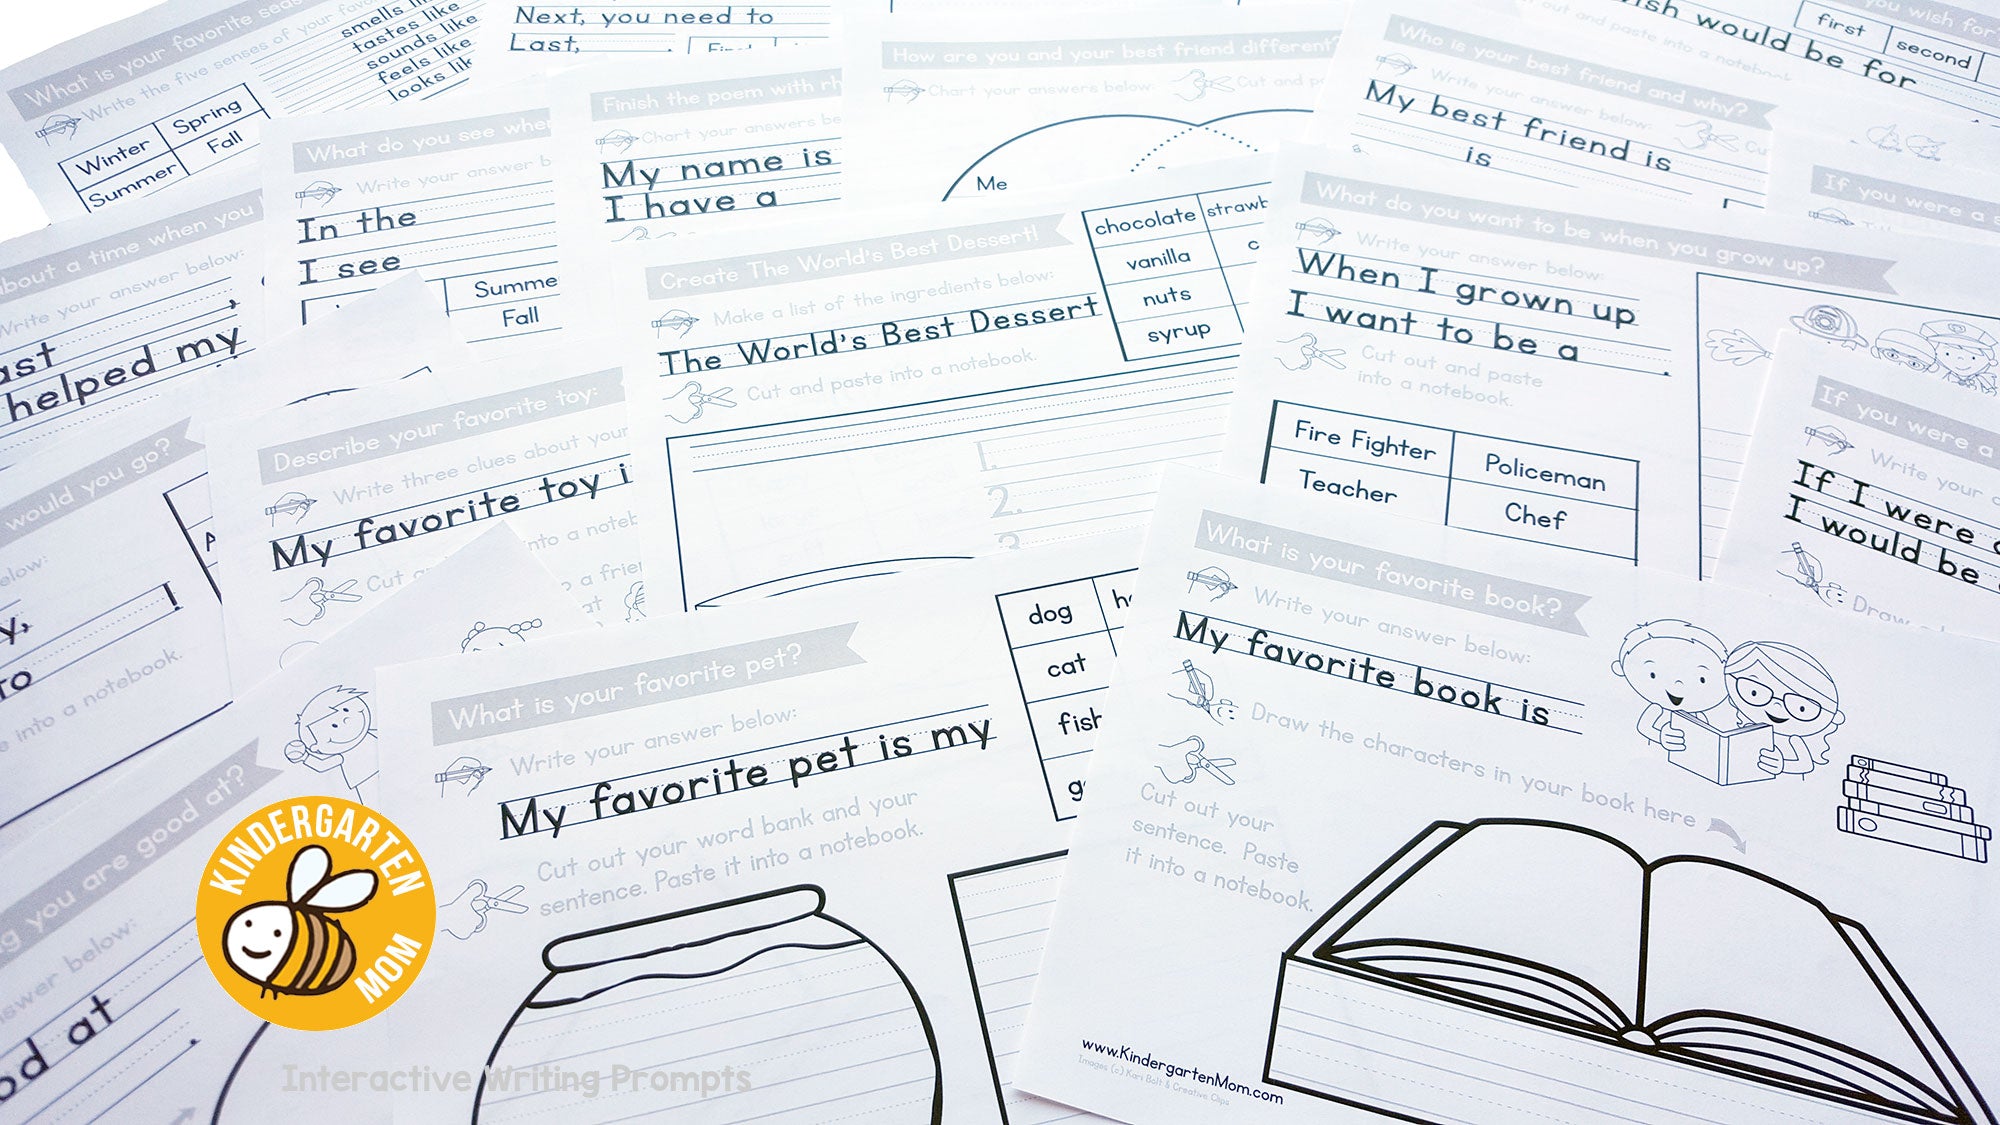 What is your favorite seas
Write the five senses of your favo
smells lik
tastes like
sounds like
feels like
looks lik
Winter
Spring
Summer
Fall
Next, you need to
Last,
How are you and your best friend different?
Chart your answers below:
Cut and p
Me
Who is your best friend and why?
Write your answer below:
My best friend is
is
Cu
wish would be for
out and paste into a notebook
you wish for
first
second
What do you see whe
Write your answer b
In the
I see
Summe
Fall
Finish the poem with rh
Chart your answers be
My name is
I have a
about a time when you
Write your answer below:
ast
helped my
Create The World's Best Dessert!
Make a list of the ingredients below:
The World's Best Dessert
Cut and paste into a notebook.
chocolate
strawb
vanilla
c
nuts
syrup
1.
2.
3
What do you want to be when you grow up?
Write your answer below:
When I grow up
I want to be a
.
Cut out and paste
into a notebook.
Fire Fighter
Policeman
Teacher
Chef
If you were a s
If you were a
Write your a
If I were
I would be
Draw
would you go?
elow:
y,
!
to
e into a notebook.
Describe your favorite toy:
Write three clues about your
My favorite toy i
Cut
nto a noteb
a frie
at
What is your favorite pet?
Write your answer below:
My favorite pet is my
Cut out your word bank and your
sentence. Paste it into a notebook.
dog
cat
fish
g
What is your favorite book?
Write your answer below:
My favorite book is
Draw the characters in your book here
Cut out your
sentence. Paste
it into a notebook.
www.KindergartenMom.com
Images (c) Kari Bolt & Creative Clips
g you are good at?
nswer below:
od at
.
KINDERGARTEN
MOM
Interactive Writing Prompts